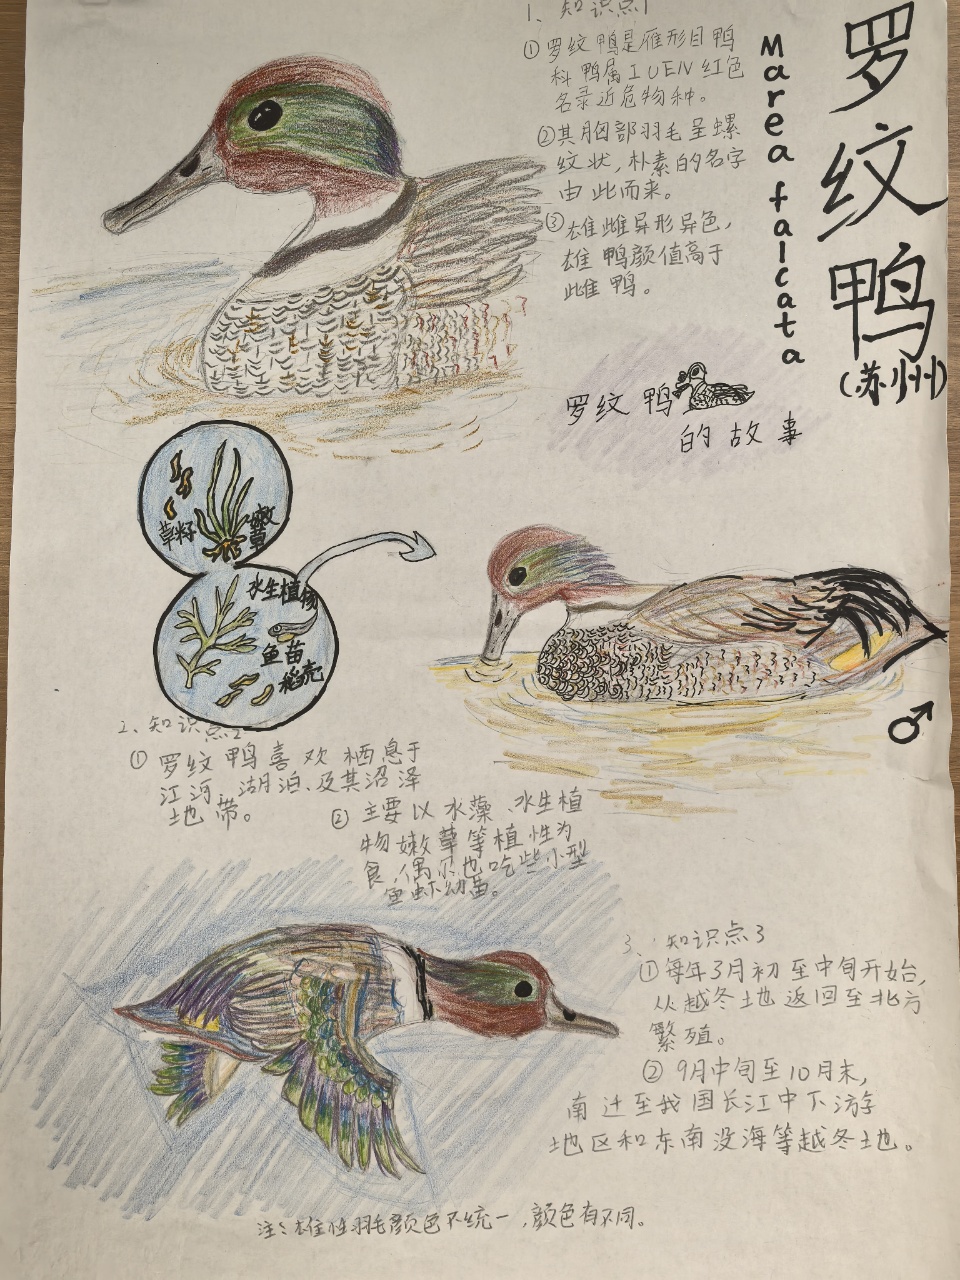 罗纹鸭
(苏州)
Marea falcata
1、知识点1
①罗纹鸭是雁形目鸭
科鸭属IUEN红色
名录近危物种。
②其胸部羽毛呈螺
纹状,朴素的名字
由此而来。
③雄雌异形异色,
雄鸭颜值高于
雌鸭。
罗纹鸭
的故事
草籽
嫩草
水生植物
鱼苗
稻壳
♂
2、知识点2
①罗纹鸭喜欢栖息于
江河、湖泊、及其沼泽
地带。
②主要以水藻、水生植
物嫩草等植性为
食,偶尔也吃些小型
鱼虾幼苗。
3、知识点3
①每年3月初至中旬开始,
从越冬土地返回至北方
繁殖。
②9月中旬至10月末,
南迁至我国长江中下游
地区和东南没海等越冬土地。
注:雄性羽毛颜色不统一,颜色有不同。